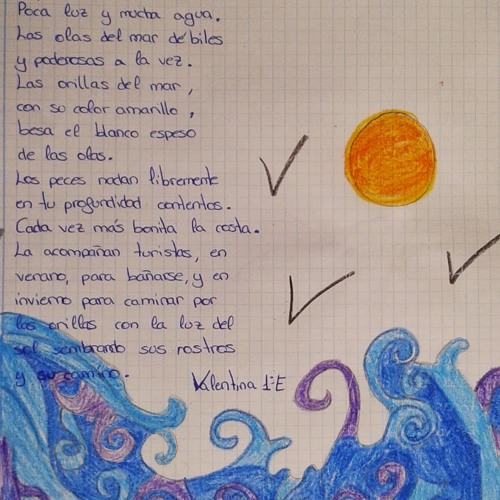 Poca luz y mucha agua.
Las olas del mar débiles
y poderosas a la vez.
Las orillas del mar,
con su color amarillo,
besa el blanco espeso
de las olas.
Los peces nadan libremente
en tu profundidad contentos.
Cada vez más bonita la costa.
La acompañan turistas, en
verano, para bañarse, y en
invierno para caminar por
las orillas con la luz del
sol, sembrando sus rostros
y su camino.
Valentina 1ºE